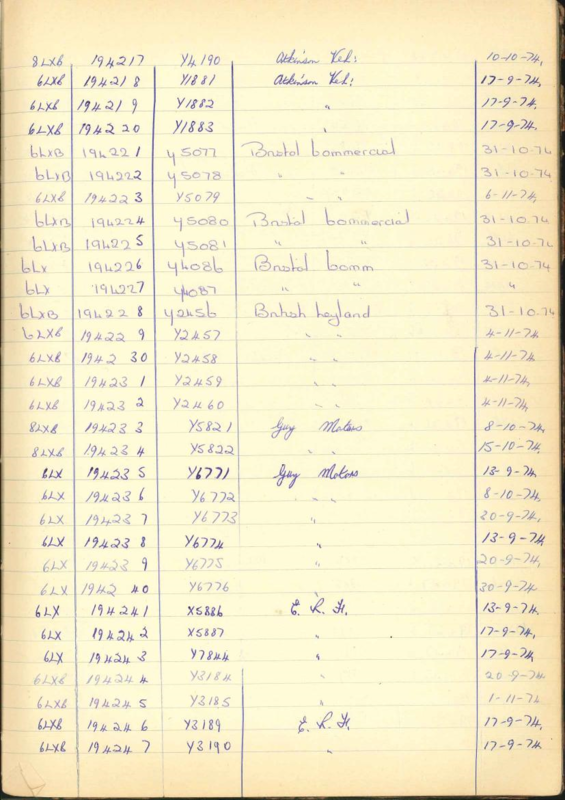 8LXB 194217 Y4190 Atkinson Veh: 10-10-74,
6LXB 194218 Y1881 Atkinson Veh: 17-9-74,
6LXB 194219 Y1882 " 17-9-74,
6LXB 194220 Y1883 " 17-9-74,
6LXB 194221 Y5077 Bristol Commercial 31-10-74
6LXB 194222 Y5078 " " 31-10-74
6LXB 194223 Y5079 " " 6-11-74
6LXB 194224 Y5080 Bristol Commercial 31-10-74
6LXB 194225 Y5081 " " 31-10-74
6LX 194226 Y4086 Bristol Comm 31-10-74
6LX 194227 Y4087 " " "
6LXB 194228 Y2456 British Leyland 31-10-74
6LXB 194229 Y2457 " " 4-11-74,
6LXB 194230 Y2458 " " 4-11-74
6LXB 194231 Y2459 " " 4-11-74,
6LXB 194232 Y2460 " " 4-11-74,
8LXB 194233 Y5821 Guy Motors 8-10-74,
8LXB 194234 Y5822 " " 15-10-74,
6LX 194235 Y6771 Guy Motors 13-9-74,
6LX 194236 Y6772 " " 8-10-74,
6LX 194237 Y6773 " 20-9-74,
6LX 194238 Y6774 " 13-9-74
6LX 194239 Y6775 " 20-9-74,
6LX 194240 Y6776 " 30-9-74
6LX 194241 X5886 E. R. F. 13-9-74,
6LX 194242 X5887 " 17-9-74,
6LX 194243 Y7844 " 17-9-74,
6LXB 194244 Y3184 " 20-9-74
6LXB 194245 Y3185 " 1-11-74,
6LXB 194246 Y3189 E. R. F. 17-9-74,
6LXB 194247 Y3190 " 17-9-74,